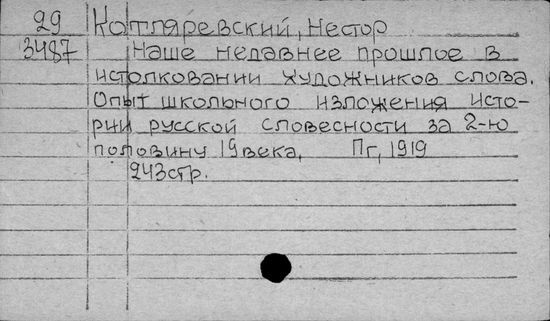 29 Котляревский, Нестор
3487 Наше недавнее прошлое в
истолковании художников слова.
Опыт школьного изложения исто-
рии русской словесности за 2-ю
половину 19 века, Пг, 1919
243 стр.